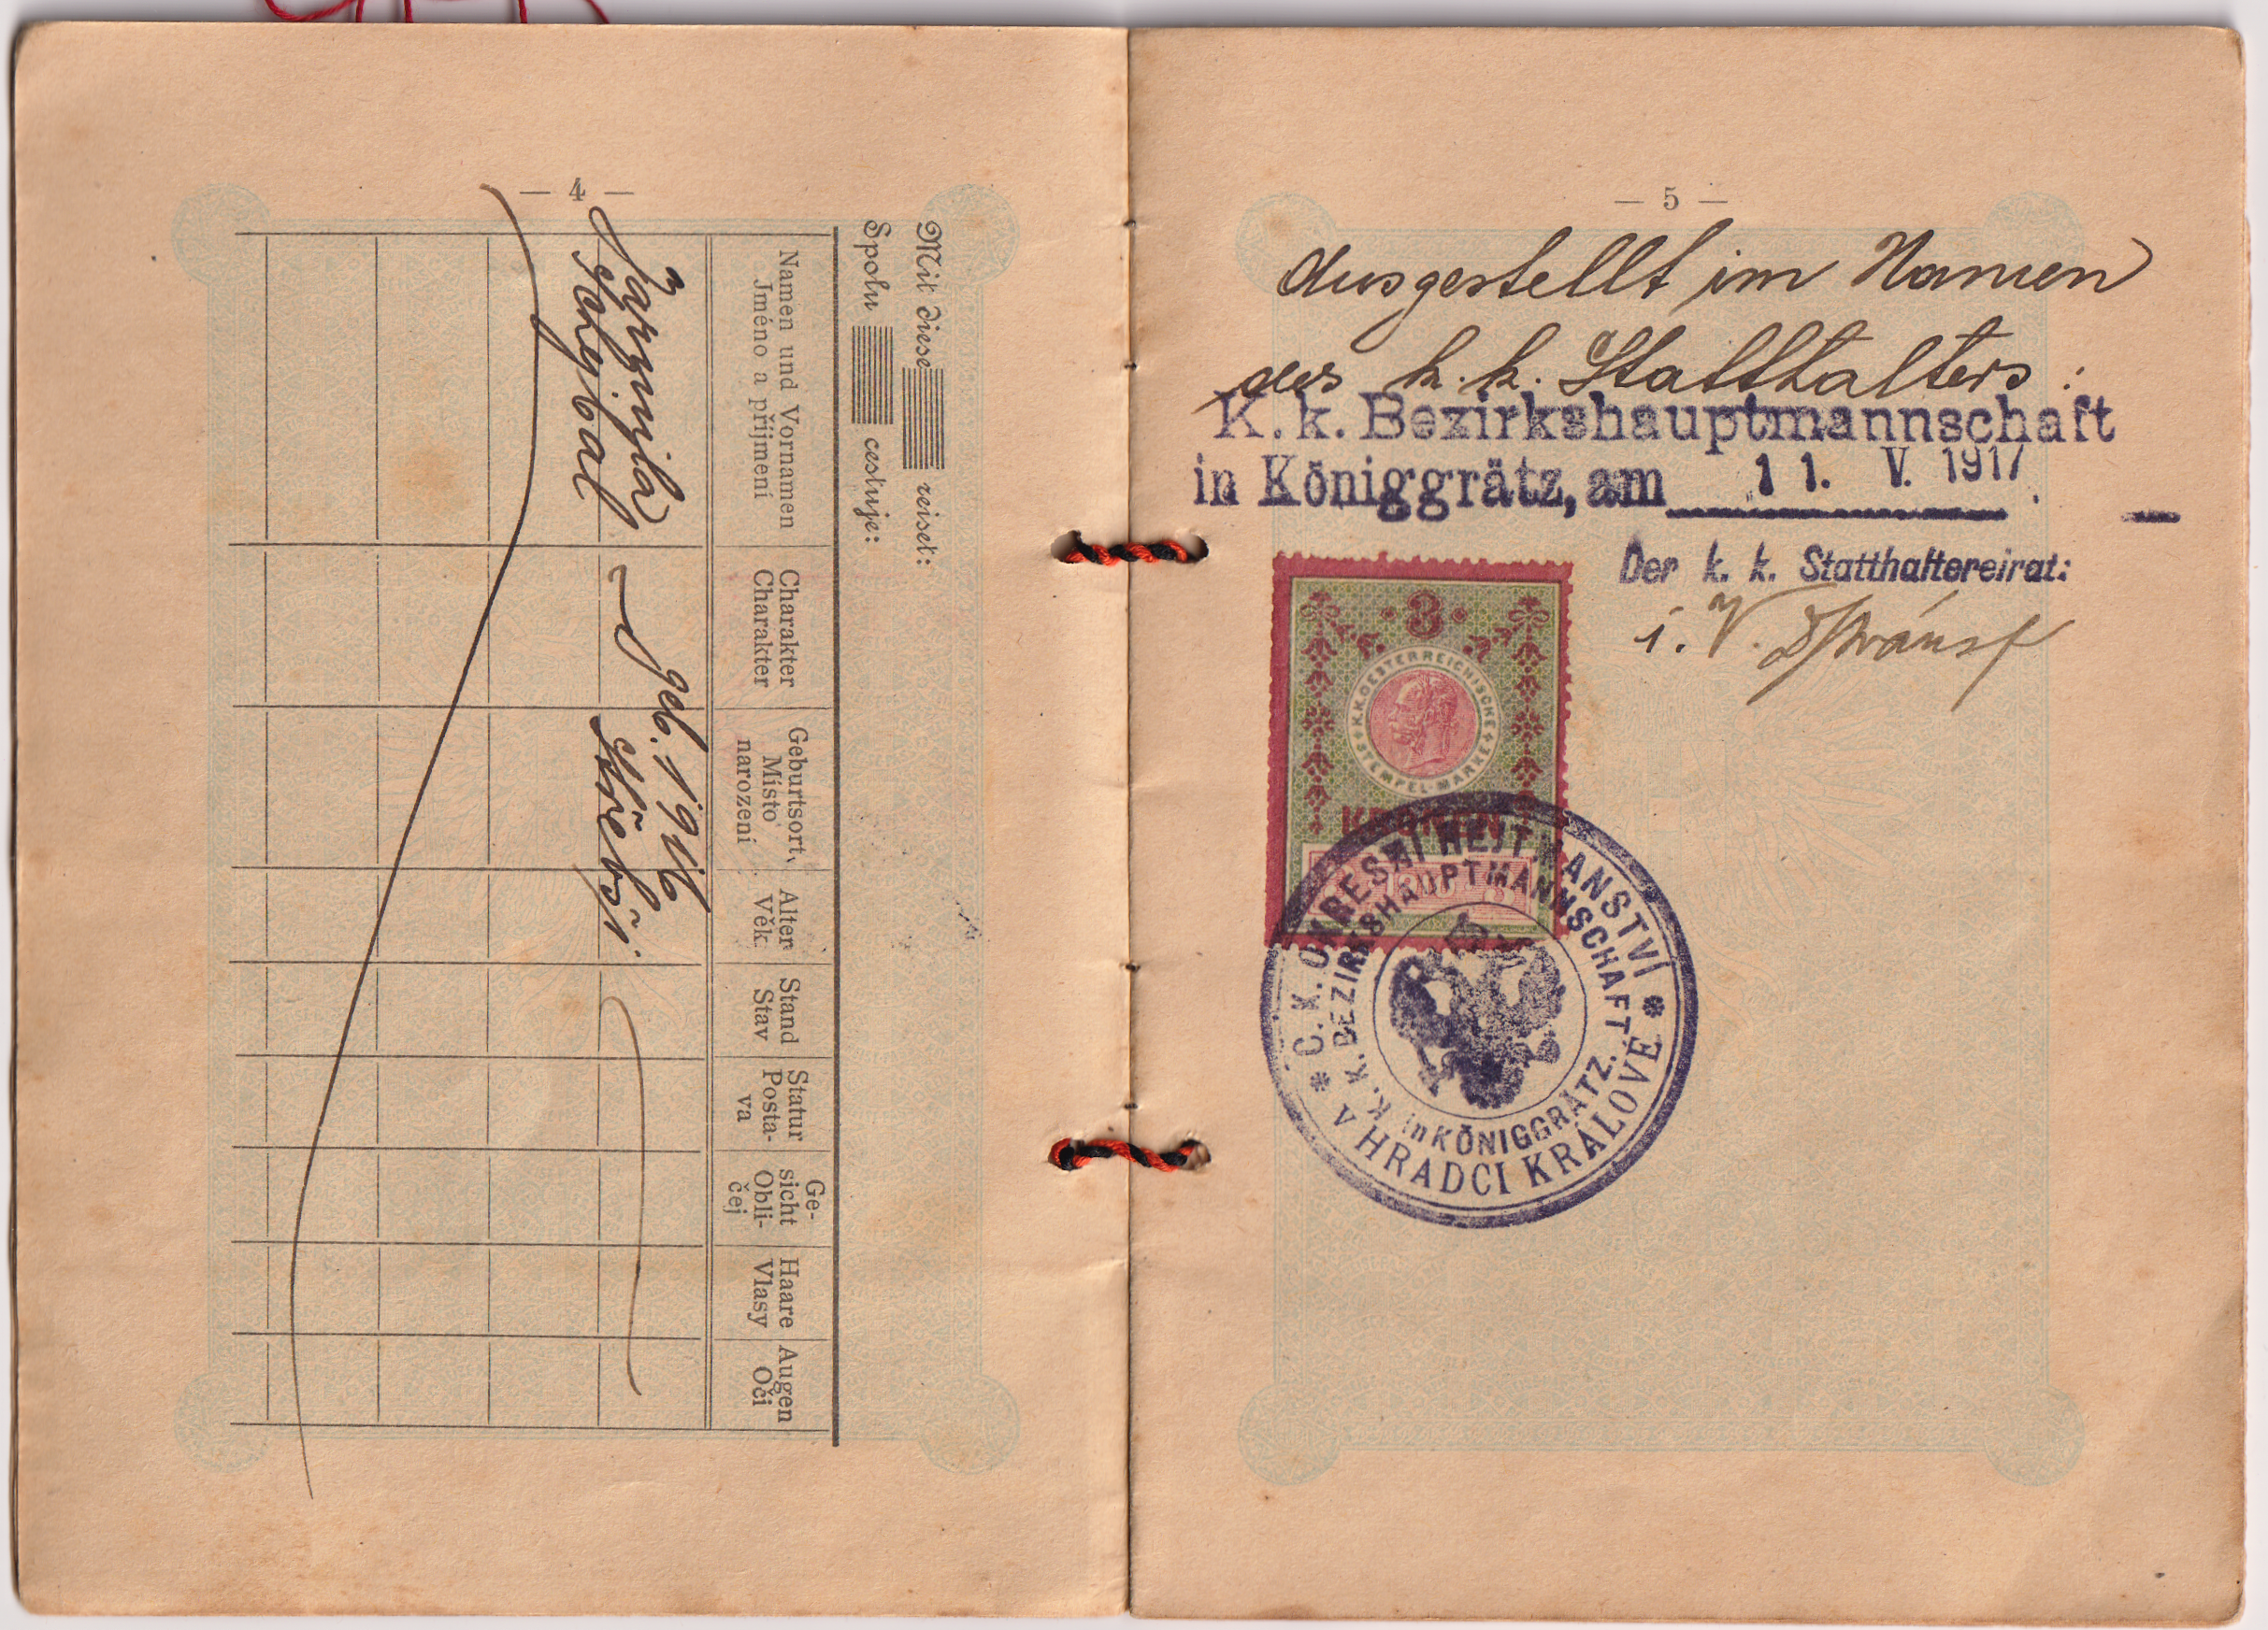 — 4 —
Mit diese reiset:
Spolu cestuje:
Namen und Vornamen
Jméno a příjmení
Charakter
Charakter
Geburtsort,
Místo
narození
Alter
Věk
Stand
Stav
Statur
Posta-
va
Ge-
sicht
Obli-
čej
Haare
Vlasy
Augen
Oči
geb. 1916
— 5 —
Ausgestellt im Namen
des k. k. Statthalters:
K. k. Bezirkshauptmannschaft
in Königgrätz, am 11. V. 1917.
Der k. k. Statthaltereirat:
i. V.
3
K.K. OESTERREICHISCHE
STEMPEL-MARKE
KRONEN
* C. K. OKRESNÍ HEJTMANSTVÍ *
V HRADCI KRÁLOVÉ
K. K. BEZIRKSHAUPTMANNSCHAFT
in KÖNIGGRÄTZ.